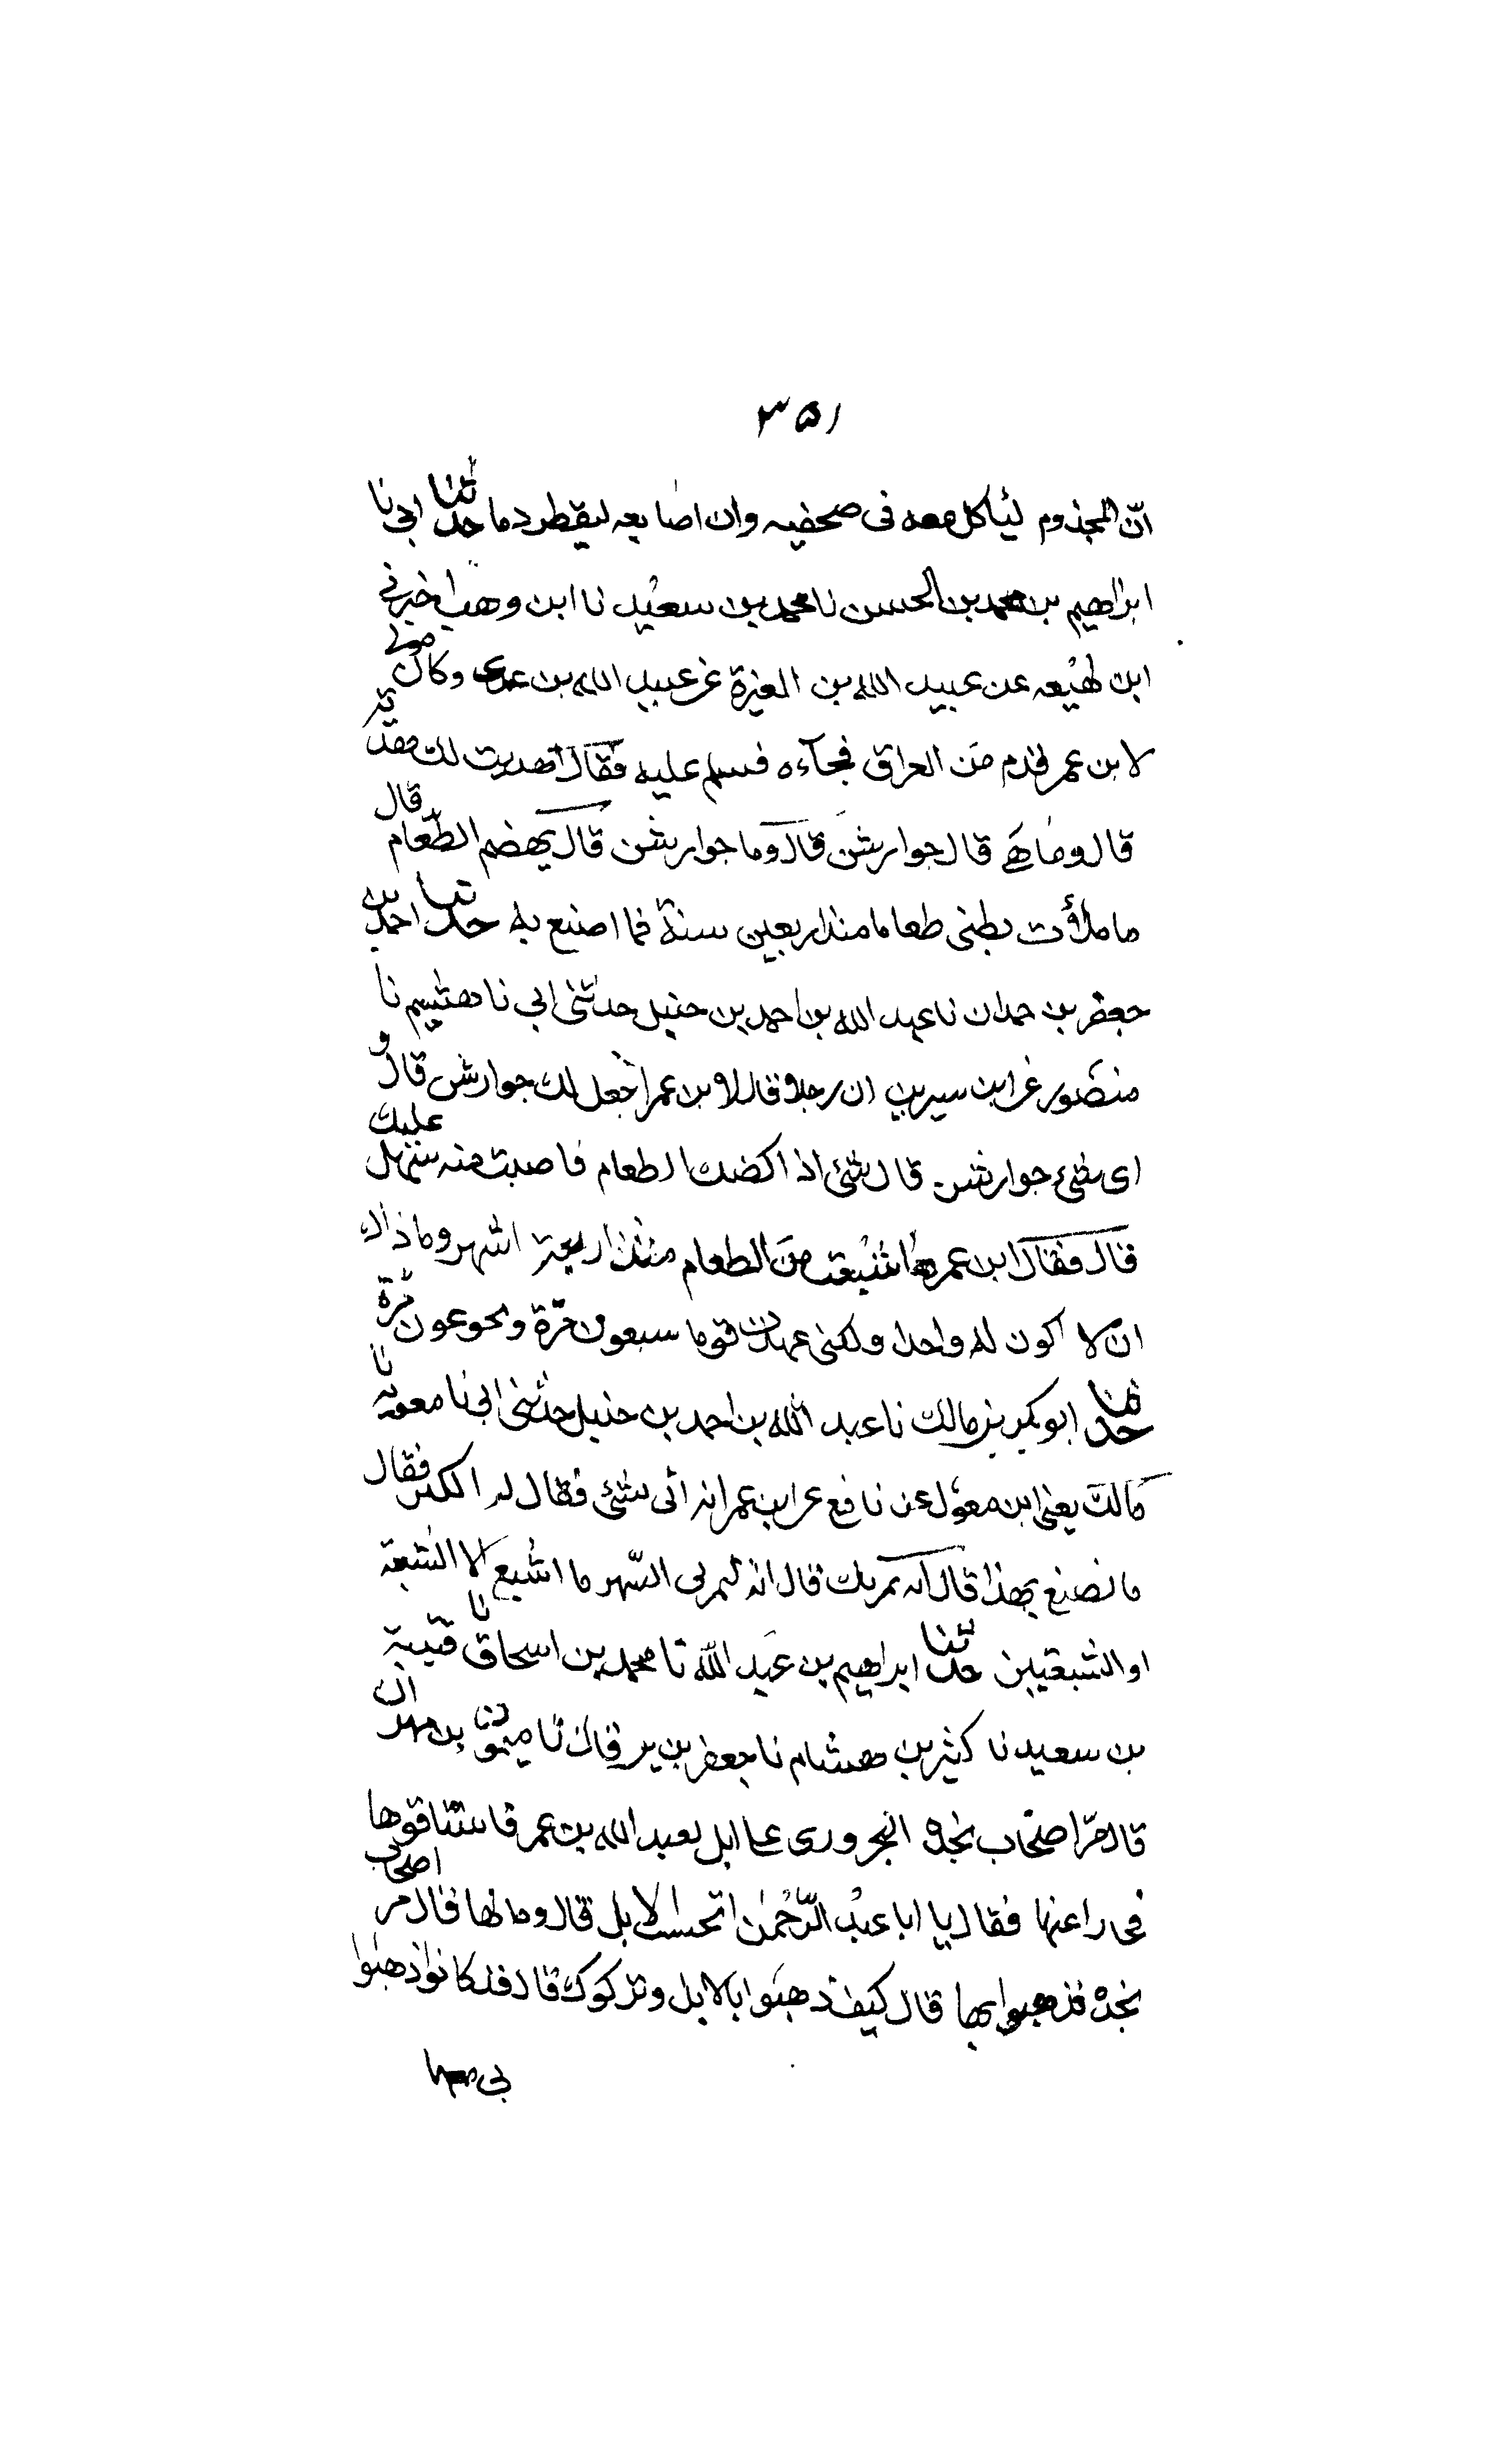 ٣٥١
انّ المجذوم ليأكل معه فى صحفيه وان اصابعه ليقطر دما حدثنا ابى نا
ابراهيم بن محمد بن الحسن نا محمد بن سعيد نا ابن وهب اخبرنى
ابن لهيعه عن عبيد الله بن المغيرة عن عبيد الله بن عدى وكان مولى
لابن عمر قدم من العراق فجآءه فسلم عليه فقال اهديت لك هدية
قال وما هى قال جوارشن قال وما جوارشن قال يهضم الطعام قال
ما ملأت بطنى طعاما منذ اربعين سنة فما اصنع به حدثنا احمد بن
جعفر بن حمدان نا عبد الله بن احمد بن حنبل حدثنى ابى نا هشيم نا
منصور عن ابن سيرين ان رجلا قال لابن عمر اجعل لك جوارش قال و
اى شئ جوارشن قال شئ اذا كضك الطعام فاصبت منه سهل عليك
قال فقال ابن عمر ما شبعت من الطعام منذ اربعة اشهر وما ذاك
ان لا اكون له واحدا ولكنى عهدت قوما يسبعون مرّة ويجوعون مرة
حدثنا ابو بكر بن مالك نا عبد الله بن احمد بن حنبل حدثنى ابى نا معوية نا
مالك يعنى ابن مغول عن نافع عن ابن عمر انه اتى بشئ فقال له الكبر فقال
ما نصنع بهذا قال انه يمريك قال انه ليمر بى الشهر ما اشبع الا الشبعة
او الشبعتين حدثنا ابراهيم بن عبد الله نا محمد بن اسحاق نا قتيبة
بن سعيد نا كثير بن هشام نا جعفر بن برقان نا ميمون بن مهران
قال مرّ اصحاب نجدة الحرورى على ابل لعبد الله بن عمر فاستاقوها
فجاء راعيها فقال يا ابا عبد الرّحمن احتسب الابل قال وما لها قال مر اصحاب
نجدة فذهبوا بها قال كيف ذهبوا بالابل وتركوك قال قد كانوا ذهبوا
بى معها